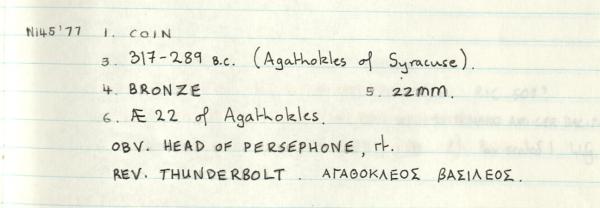 Ni45'77 1. COIN
3. 317-289 B.C. (Agathokles of Syracuse).
4. BRONZE 5. 22mm.
6. Æ 22 of Agathokles.
OBV. HEAD OF PERSEPHONE, rt.
REV. THUNDERBOLT. ΑΓΑΘΟΚΛΕΟΣ ΒΑΣΙΛΕΟΣ.